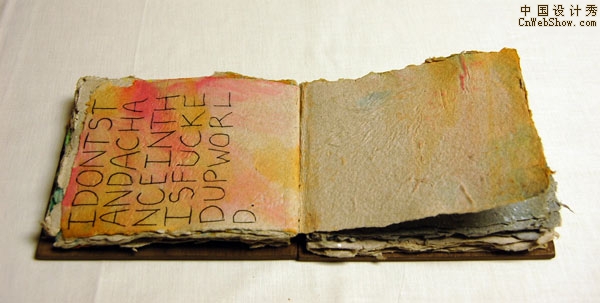 中国设计秀
CnWebShow.com
IDONTST
ANDACHA
NCEINTH
ISFUCKE
DUPWORL
D.